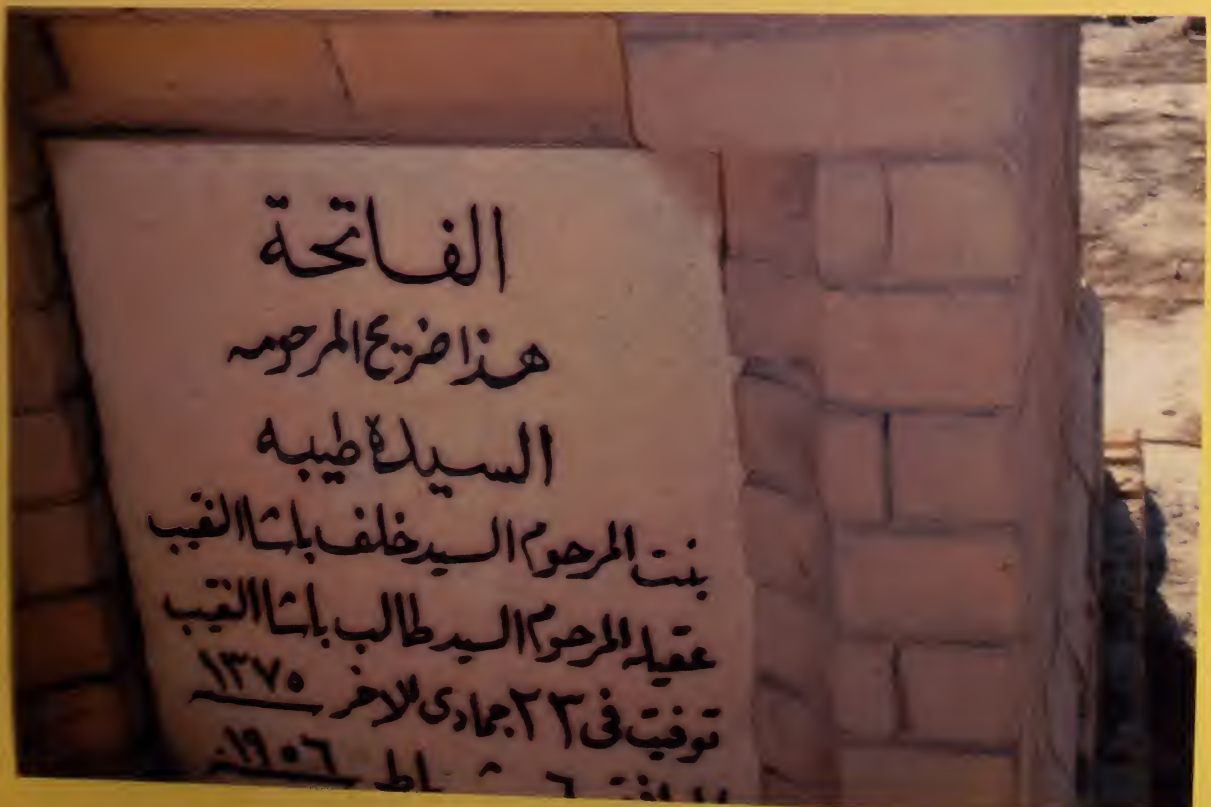 الفاتحة
هذا ضريح المرحومه
السيدة طيبه
بنت المرحوم السيد خلف باشا النقيب
عقيلة المرحوم السيد طالب باشا النقيب
توفيت في ٢٣ جمادى الاخر ١٣٧٥
الموافق ٦ شباط ١٩٥٦